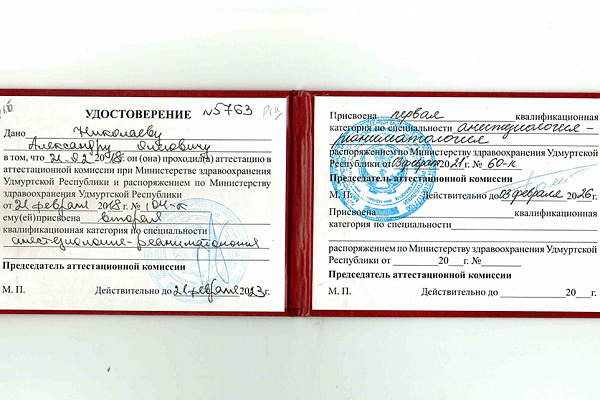 УДОСТОВЕРЕНИЕ №5763
Дано Николаеву
Александру Олеговичу
в том, что 21.02 2018г. он (она) проходил(а) аттестацию в
аттестационной комиссии при Министерстве здравоохранения
Удмуртской Республики и распоряжением по Министерству
здравоохранения Удмуртской Республики
от 21 февраля 2018 г. № 104-к
ему(ей)присвоена вторая
квалификационная категория по специальности
анестезиология-реаниматология
Председатель аттестационной комиссии
М. П. Действительно до 21 февраля 2023г.
Присвоена первая квалификационная
категория по специальности анестезиология-
реаниматология
распоряжением по Министерству здравоохранения Удмуртской
Республики от 03 февраля 2021 г. № 60-к
Председатель аттестационной комиссии
М. П. Действительно до 03 февраля 2026г.
Присвоена квалификационная
категория по специальности
распоряжением по Министерству здравоохранения Удмуртской
Республики от 20 г. №
Председатель аттестационной комиссии
М. П. Действительно до 20 г.